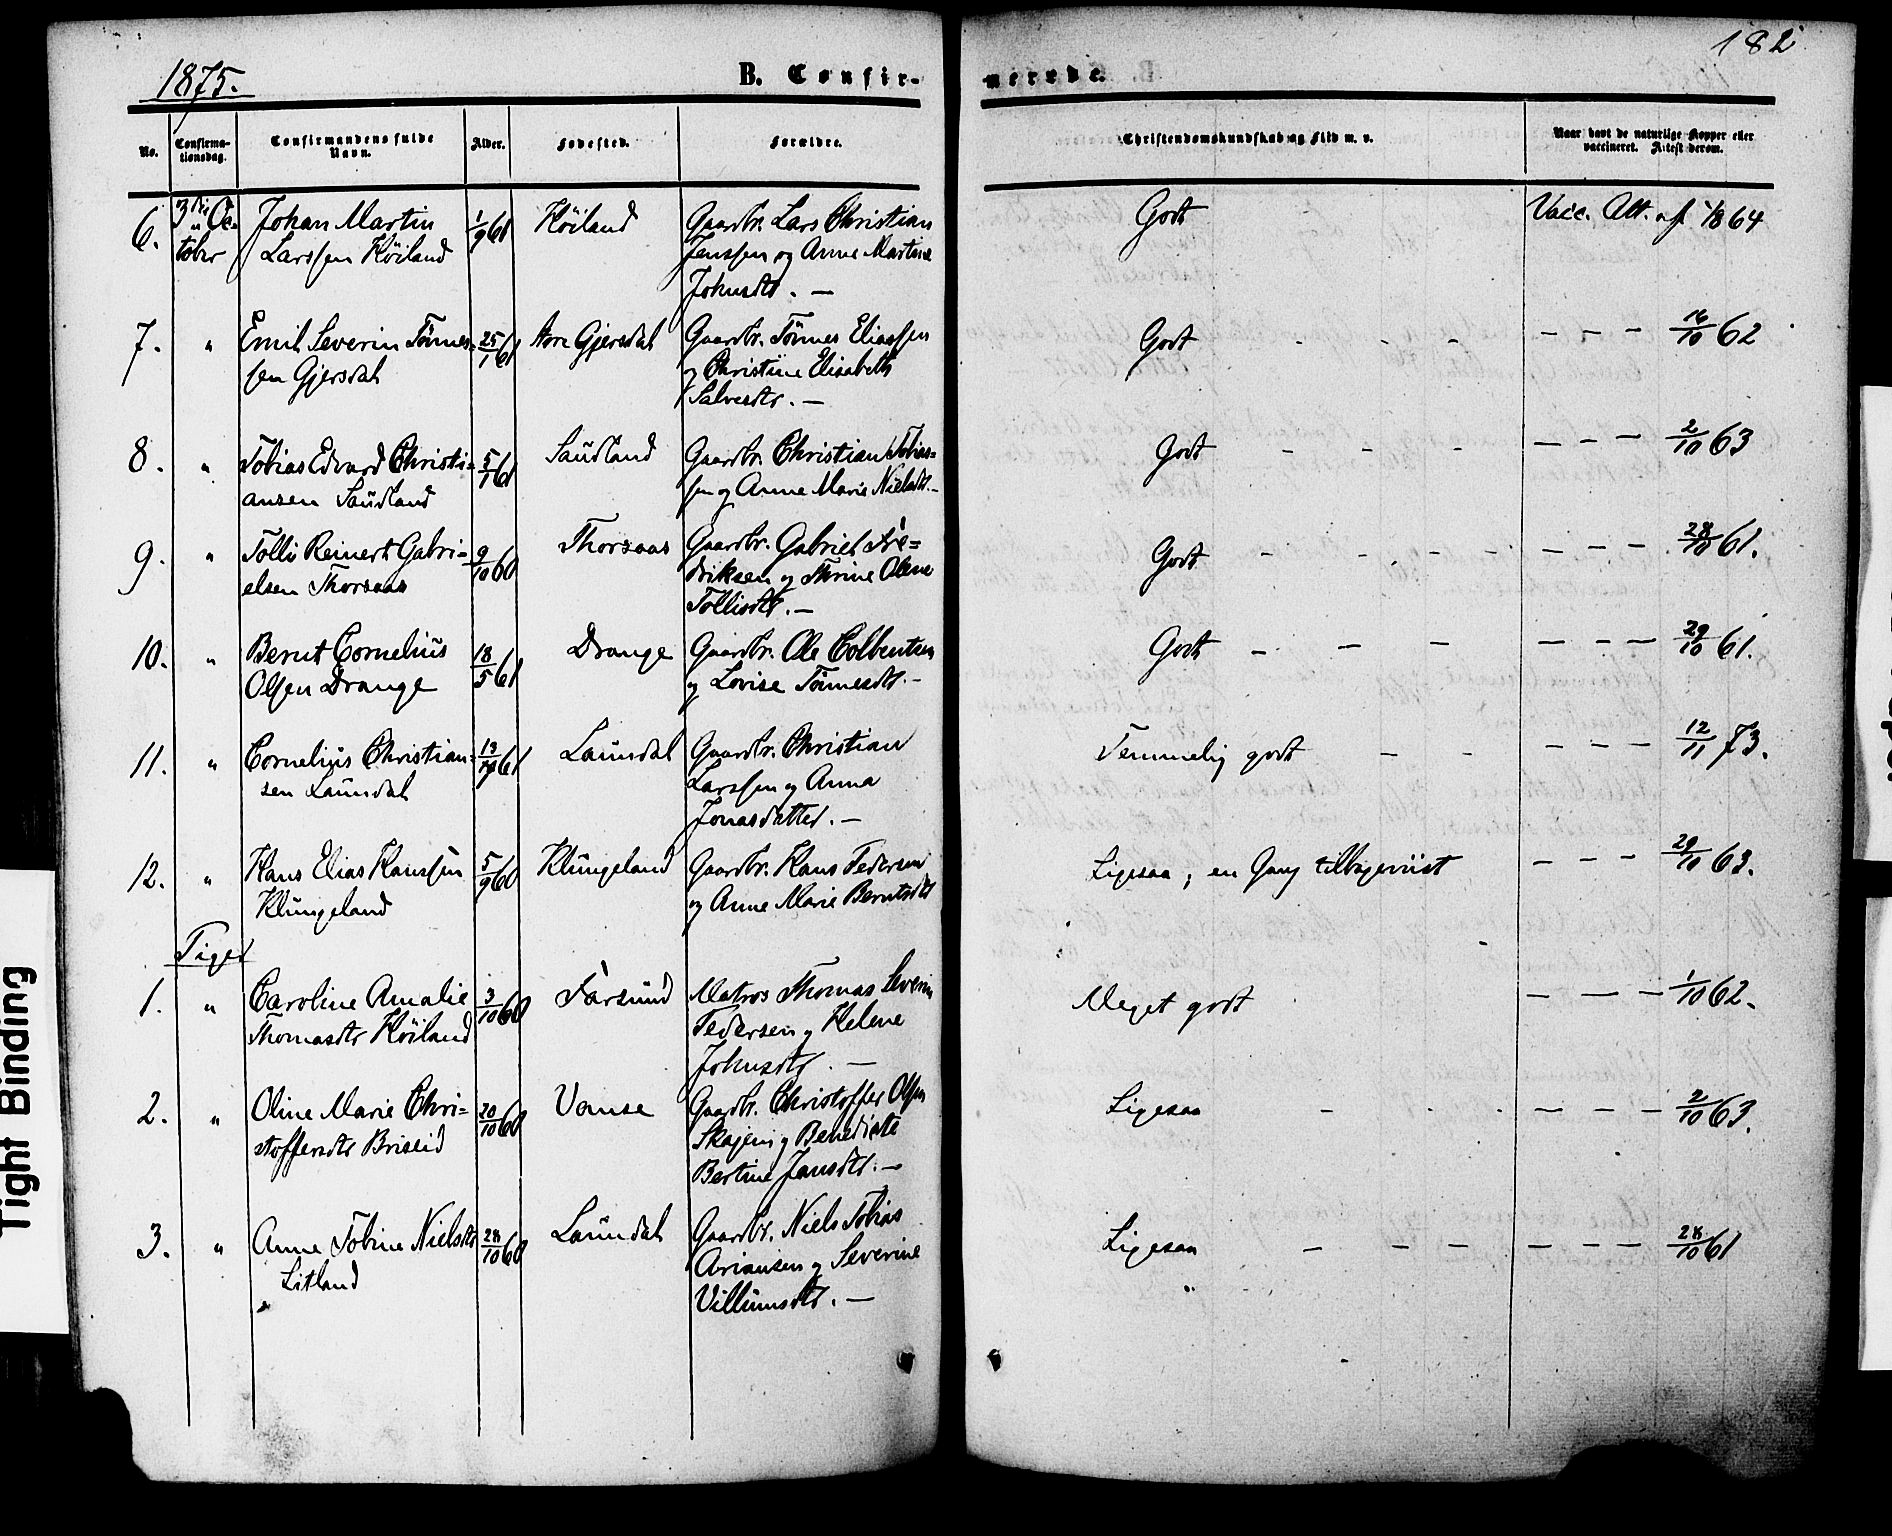 182
1875.
B. Confir-
merede.
No.
Confirma-
tionsdag.
Confirmandens fulde
Navn.
Alder.
Fødested.
Forældre.
Christendomskundskab og Flid m. v.
Naar havt de naturlige Kopper eller
vaccineret. Attest derom.
6. 3die Oc- Johan Martin 1/9 61 Høiland Gaardbr. Lars Christian Godt Vacc. Att. af 1/8 64
tober Larssen Høiland Janssen og Anne Martine
Johnsdtr. —
7. " Emil Severin Tønnes- 25/1 61 Gjersdal Gaardbr. Tønnes Eliassen Godt — — — 16/10 62
sen Gjersdal og Christine Elisabeth
Salvesdtr. —
8. " Tobias Edvard Christi= 5/1 61 Saudland Gaardbr. Christian Tobias= Godt — — — 2/10 63
ansen Saudland sen og Anne Marie Nielsdtr. —
9. " Tollis Reinert Gabri= 9/10 60 Thorsaas Gaardbr. Gabriel Fre= Godt — — — 28/10 61.
elsen Thorsaas driksen og Thrine Olene
Tollisdtr. —
10. " Bernt Cornelius 18/5 61 Drange Gaardbr. Ole Colbentsen Godt — — — 29/10 61.
Olsen Drange og Lovise Tønnesdtr. —
11. " Cornelius Christian= 61 Laundal Gaardbr. Christian Temmelig godt — — — 12/11 73.
sen Laundal Larssen og Anna
Jonasdatter. —
12. " Hans Elias Hanssen 5/9 60 Klungeland Gaardbr. Hans Pedersen Ligesaa, en Gang tilbageviist — — — 29/10 63.
Klungeland og Anne Marie Berntsdtr
Piger
1. " Caroline Amalie 3/10 60 Farsund Matros Thomas Severin Meget godt — — — 1/10 62.
Thomasdtr Høiland Pedersen og Helene
Johnsdtr. —
2. " Oline Marie Chri- 20/10 60 Vanse Gaardbr. Christoffer Olsen Ligesaa — — — 2/10 63.
stoffersdtr Briseid og Benedicte
Bertine Jansdtr. —
3. " Anne Tobine Nielsdtr 28/10 60 Laundal Gaardbr. Niels Tobias Ligesaa — — — 28/10 61
Litland Ariansen og Severine
Villumsdtr. —
Tight Binding